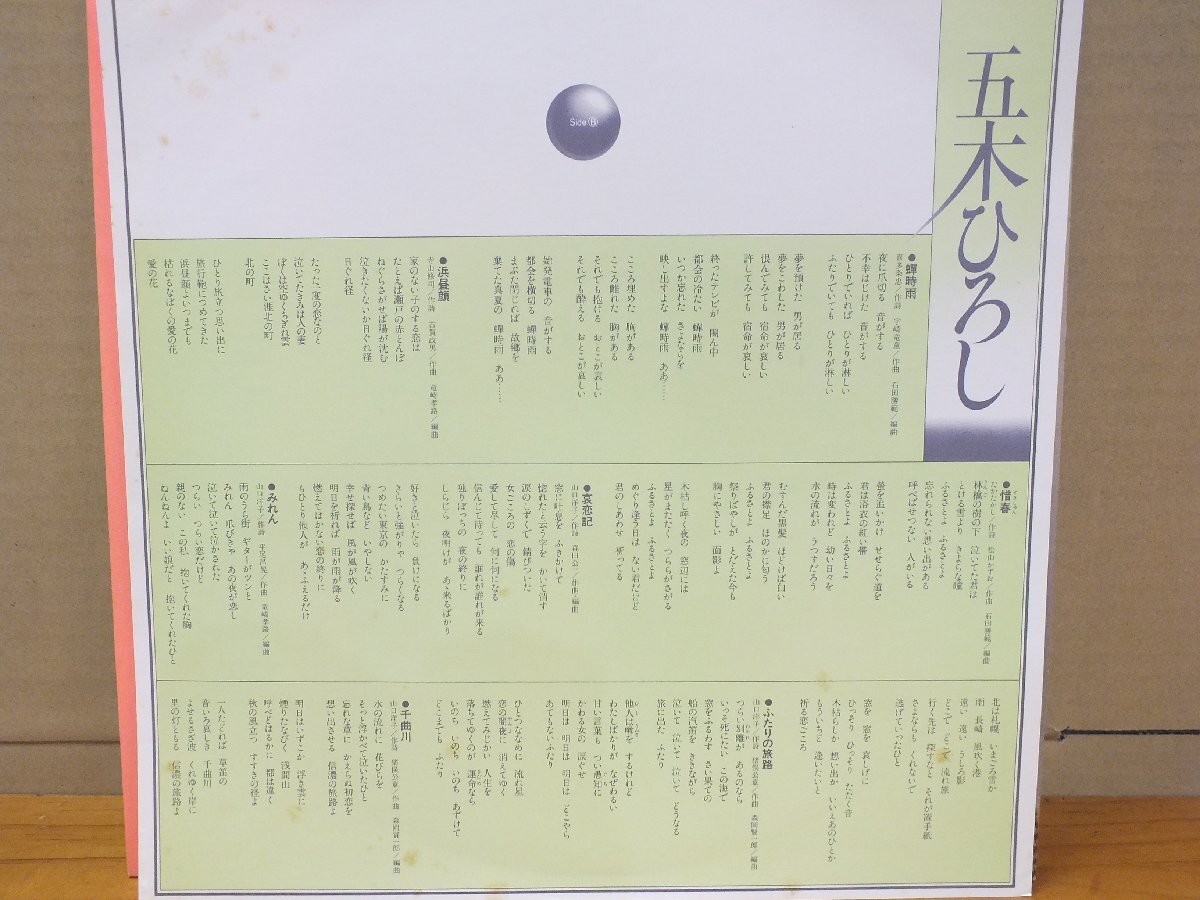 五木ひろし
Side B
●蟬時雨
喜多條忠／作詩 宇崎竜童／作曲 石田勝範／編曲
夜に爪切る 音がする
不幸はじけた 音がする
ひとりでいれば ひとりが淋しい
ふたりでいても ひとりが淋しい
夢を傾けた 男が居る
夢をこわした 男が居る
恨んでみても 宿命が哀しい
許してみても 宿命が哀しい
終ったテレビが 闇ん中
都会の冷たい 蟬時雨
いつか忘れた さよならを
映し出すよな 蟬時雨 ああ……
こころ埋めた 胸がある
こころ離れた 胸がある
それでも抱ける おとこが哀しい
それでも酔える おとこが哀しい
始発電車の 音がする
都会を横切る 蟬時雨
まぶた閉じれば 故郷を
棄てた真夏の 蟬時雨 ああ……
●浜昼顔
寺山修司／作詩 古賀政男／作曲 竜崎孝路／編曲
家のない子のする恋は
たとえば瀬戸の赤とんぼ
ねぐらさがせば陽が沈む
泣きたくないか日ぐれ径
日ぐれ径
たった一度の恋なのと
泣いていたきみは人の妻
ぼくは空ゆくちぎれ雲
ここはさい涯北の町
北の町
ひとり旅立つ思い出に
旅行鞄につめてきた
浜昼顔よいつまでも
枯れるなぼくの愛の花
愛の花
●惜春
たかたかし／作詩 松山かずお／作曲 石田勝範／編曲
林檎の樹の下 泣いてた君は
とける雪より きよらな瞳
ふるさとよ ふるさとよ
忘れられない思い出がある
呼べばせつない 人がいる
螢を追いかけ せせらぎ道を
君は浴衣の紅い帯
ふるさとよ ふるさとよ
時は変われど 幼い日々を
水の流れが うつすだろう
むすんだ黒髪 ほどけば白い
君の襟足 ほのかに匂う
ふるさとよ ふるさとよ
祭りばやしが とだえた今も
胸にやさしい 面影よ
木枯し呼ぶ夜の 窓辺には
星がまたたく つららがさがる
ふるさとよ ふるさとよ
めぐり逢う日は ない君だけど
君のしあわせ 祈ってる
●哀恋記
山口洋子／作詩 森田公一／作曲・編曲
窓に吐息を ふきかけて
惚れたと云う字を かいて消す
涙のしずくで 錆びついた
女ごころの 恋の鍵
愛して尽して 何になる
信んじて待っても 誰れが誰れが来る
独りぼっちの 夜の終りに
しらじら 夜明けが あゝ来るばかり
好きと泣いたら 負けになる
きらいと強がりゃ つらくなる
つめたい東京の かたすみに
青い鳥など いやしない
幸せ探せば 風が風が吹く
明日を祈れば 雨が雨が降る
燃えてはかない恋の終りに
もひとり他人が あゝふえるだけ
●みれん
山口洋子／作詩 平尾昌晃／作曲 竜崎孝路／編曲
雨のうら街 ギターがツンと
みれん 爪びきゃ あの夜が恋し
泣いて泣いて泣かさた
つらい つらい恋だけど
親のない この私 抱いてくれた胸
ねんねんよ いい娘だと 抱いてくれたひと
北は札幌 いまごろ雪か
雨の長崎 風吹く港
遠い 遠い うしろ影
どこで どこで 流れ旅
行く先は 探すなと それが置手紙
さよならも くれないで
逃げていったひと
窓を 窓を 哀しげに
ひっそり ひっそり たたく音
木枯らしか 想い出か いいえあのひとか
もういちど 逢いたいと
祈る恋ごころ
●ふたりの旅路
山口洋子／作詩 猪俣公章／作曲 森岡賢一郎／編曲
つらい別離が あるのなら
いっそ死にたい この海で
窓をふるわす さい果ての
船の汽笛を ききながら
泣いて 泣いて 泣いて どうなる
旅に出た ふたり
他人は噂を するけれど
わたしばかりが なぜわるい
甘い言葉も つい愚知に
かわる女の 涙ぐせ
明日は 明日は 明日は どこやら
あてもない ふたり
ひとつななめに 流れ星
恋の闇夜に 消えてゆく
燃えてみじかい 人生を
落ちてゆくのが 運命なら
いのち いのち いのち あずけて
どこまでも ふたり
●千曲川
山口洋子／作詩 猪俣公章／作曲 森岡賢一郎／編曲
水の流れに 花びらを
そっと浮かべて泣いたひと
忘れな草に かえらぬ初恋を
想い出させる 信濃の旅路よ
明日はいずこか 浮き雲に
煙りたなびく 浅間山
呼べどはるかに 都は遠く
秋の風立つ すすきの径よ
一人たどれば 草笛の
音いろ哀しき 千曲川
よせるさざ波 くれゆく岸に
里の灯ともる 信濃の旅路よ